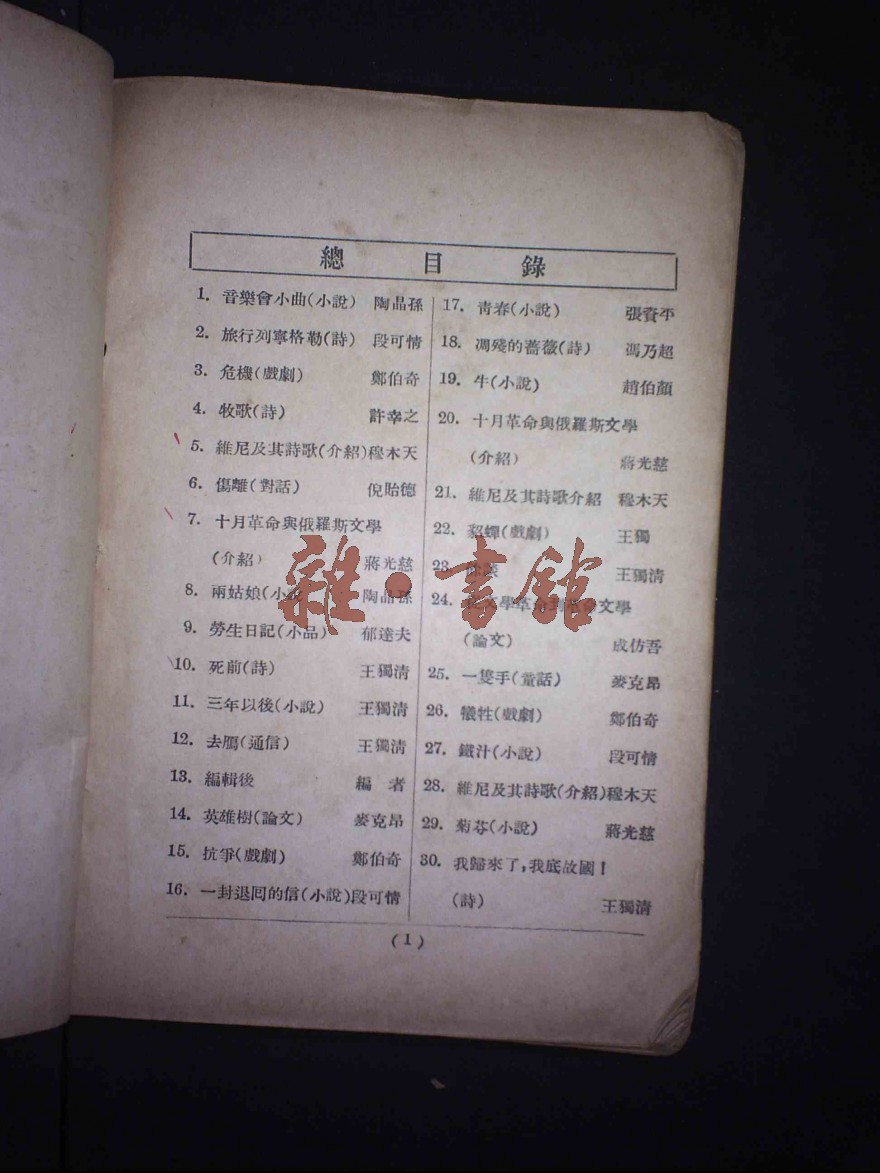 總目錄
1. 音樂會小曲(小說) 陶晶孫
2. 旅行列寧格勒(詩) 段可情
3. 危機(戲劇) 鄭伯奇
4. 牧歌(詩) 許幸之
5. 維尼及其詩歌(介紹)穆木天
6. 傷離(對話) 倪貽德
7. 十月革命與俄羅斯文學
(介紹) 蔣光慈
8. 兩姑娘(小說 陶晶孫
9. 勞生日記(小品) 郁達夫
10. 死前(詩) 王獨清
11. 三年以後(小說) 王獨清
12. 去鴈(通信) 王獨清
13. 編輯後 編者
14. 英雄樹(論文) 麥克昂
15. 抗爭(戲劇) 鄭伯奇
16. 一封退囘的信(小說)段可情
17. 青春(小說) 張資平
18. 凋殘的薔薇(詩) 馮乃超
19. 牛(小說) 趙伯顏
20. 十月革命與俄羅斯文學
(介紹) 蔣光慈
21. 維尼及其詩歌介紹 穆木天
22. 貂蟬(戲劇) 王獨
23. 王獨清
24. 文學革命到革命文學
(論文) 成仿吾
25. 一隻手(童話) 麥克昂
26. 犧牲(戲劇) 鄭伯奇
27. 鐵汁(小說) 段可情
28. 維尼及其詩歌(介紹)穆木天
29. 菊芬(小說) 蔣光慈
30. 我歸來了,我底故國！
(詩) 王獨清
(1)
雜·書館